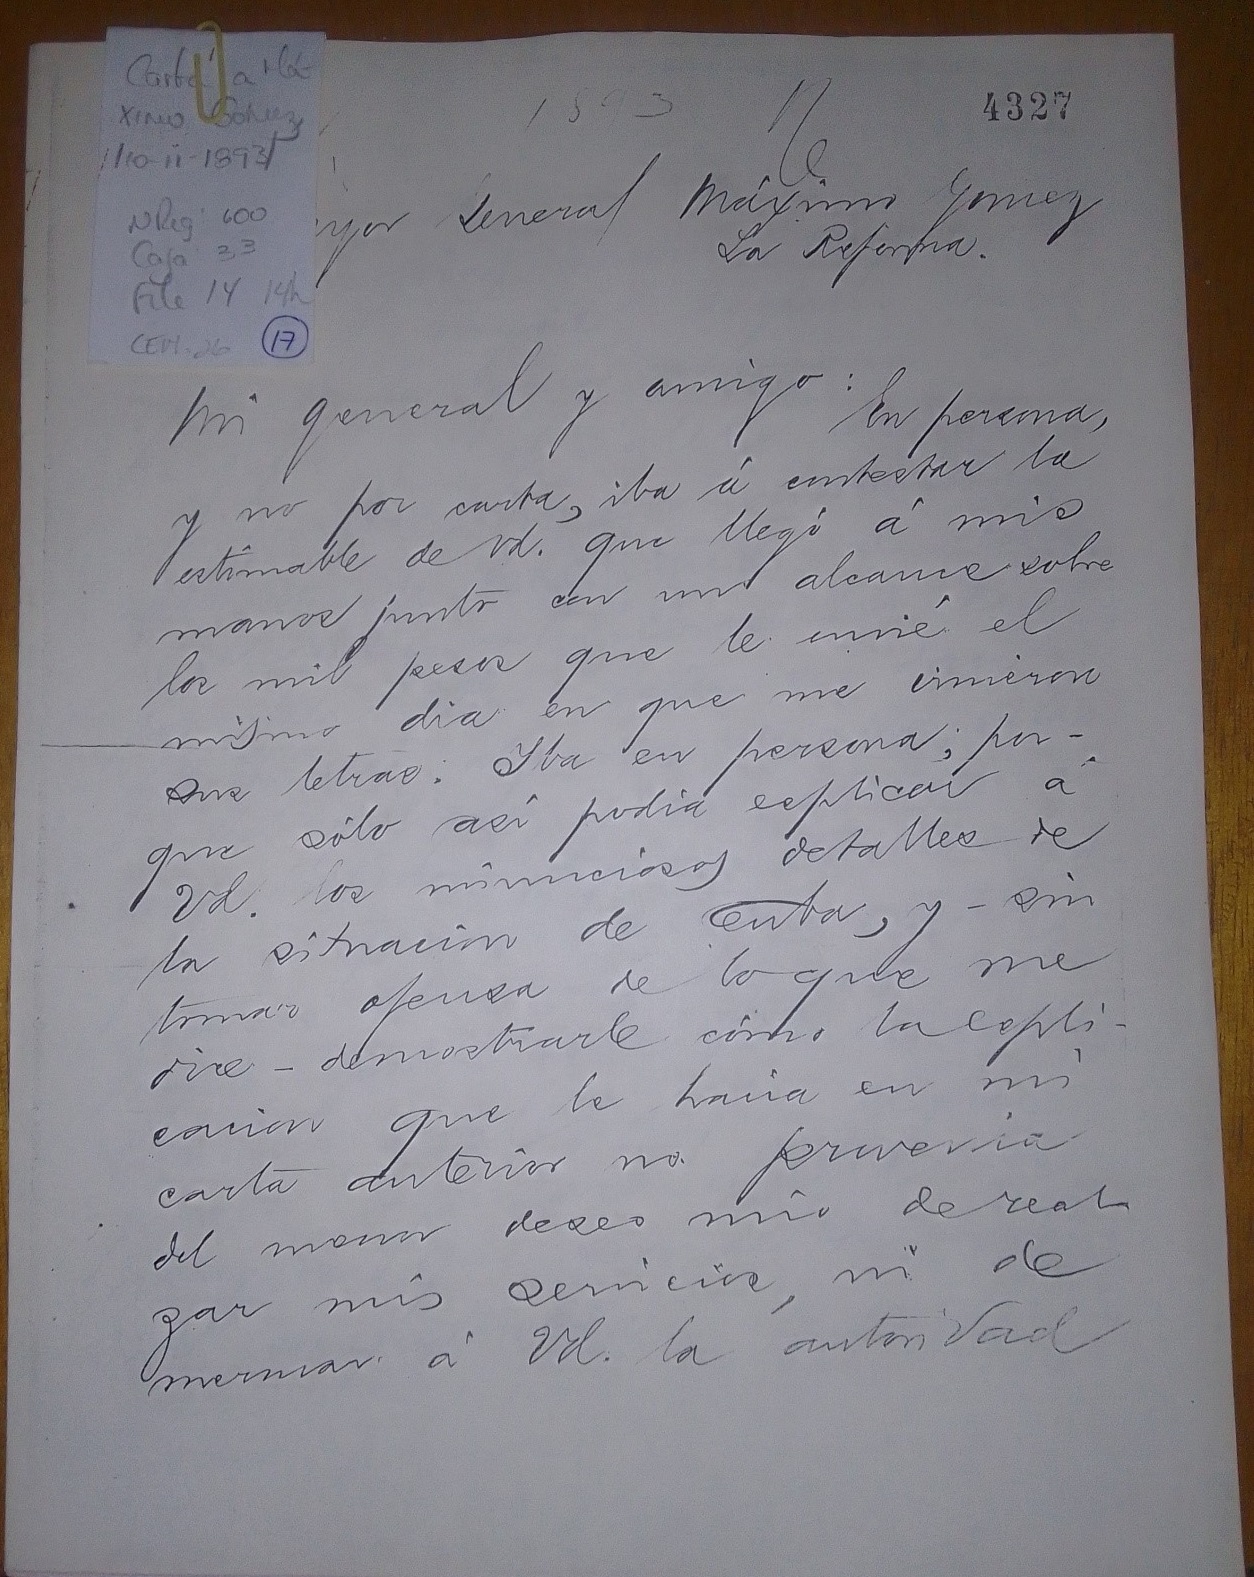 Carta a Má-
ximo Gómez
10-ii-1893
NReg: 600
Caja 33
File 14 14h
CEM.
17
1893
4327
yor General Máximo Gomez
La Reforma.
Mi general y amigo:
En persona,
y no por carta, iba á contestar la
estimable de Vd. que llegó á mis
manos junto con un alcance sobre
los mil pesos que le envié el
mismo dia en que me vinieron
sus letras. Iba en persona; por-
que sólo así podia esplicar á
Vd. los minuciosos detalles de
la situacion de Cuba, y - sin
tomar ofensa de lo que me
dice - demostrarle cómo la espli-
cacion que le hacia en mi
carta anterior no provenia
del menor deseo mio de real-
zar mis servicios, ni de
mermar á Vd. la autoridad